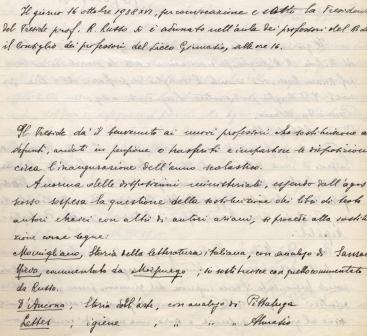 Il giorno 16 ottobre 1938 XVI, per convocazione e sotto la Presidenza
del Preside prof. R. Lusso si è adunato nell'aula dei professori del
il Consiglio dei professori del Liceo Ginnasio, alle ore 16.
Il Preside dà il benvenuto ai nuovi professori che sostituiscono
defunti, andati in pensione o trasferiti e impartisce le disposizioni
circa l'inaugurazione dell'anno scolastico.
A norma delle disposizioni ministeriali, essendo dall'agos
sospesa la questione della sostituzione dei libri di testo
autori ebraici con altri di autori ariani, si procede alla sostitu
zione come segue:
Momigliano, Storia della letteratura italiana, con analogo di Sansone
commentata da Morpurgo, si sostituisce con quello commentato
da Russo.
D'Ancona, Storia dell'arte, con analogo di Pittaluga
Lattes, igiene " " "